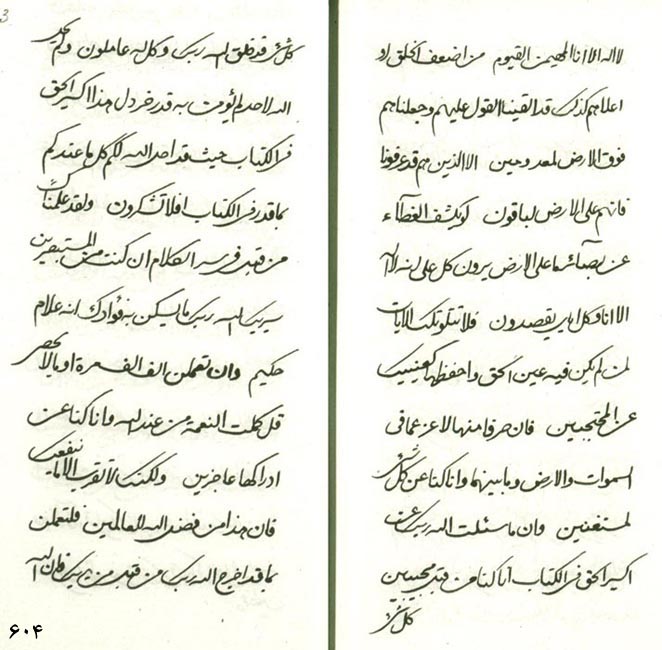 لااله الا انا المهيمن القيوم من اضعف الخلق او
اعلاهم كذلك قد القينا القول عليهم وجعلناهم
فوق الارض لمعدوحين الا الذين هم قد عرفونا
فانهم على الارض لباقون لو يكشف الغطاء
عن بصائر ما على الارض يرون كل على انه لا اله
الا انا وكل اياي يقصدون فلا تتلو تلك الايات
لمن لم يكن فيه عين الحق واحفظها كعينيك
عن المحتجبين فان حرفا منها لاعز عما في
السموات والارض وما بينهما وانا كنا عن كل شئ
لمستغنين وان ما سئلت الله ربك عن
اكسير الحق في الكتاب انا كنا من قبل مجيبين
كل شئ
كل شئ قد خلق الله ربك وكل له عاملون ولم يحد
الله لاحد لم يؤت به قدر خردل هذا اكسير الحق
في الكتاب حيث قد احل الله لكم كل ما عندكم
بما قدر في الكتاب افلا تشكرون ولقد علمناك
من قبل في سر الكلام ان كنت من المستبصرين
سيريك الله ربك ما يسكن به فؤادك انه علام
حكيم وان تعملن الف الف مرة او بالاحصر
قل كلت النعمة من عند الله وانا كنا عن
ادراكها عاجزين ولكنك لا تقرب الا ما ينفعك
فان هذا من فضل الله للعالمين فلتعملن
بما قد اخرج الله ربك من قبل من يديك فان الله
۶۰۴
3